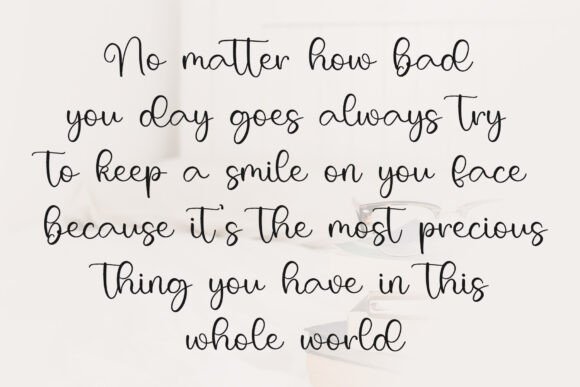 No matter how bad
you day goes always try
to keep a smile on you face
because it's the most precious
thing you have in this
whole world